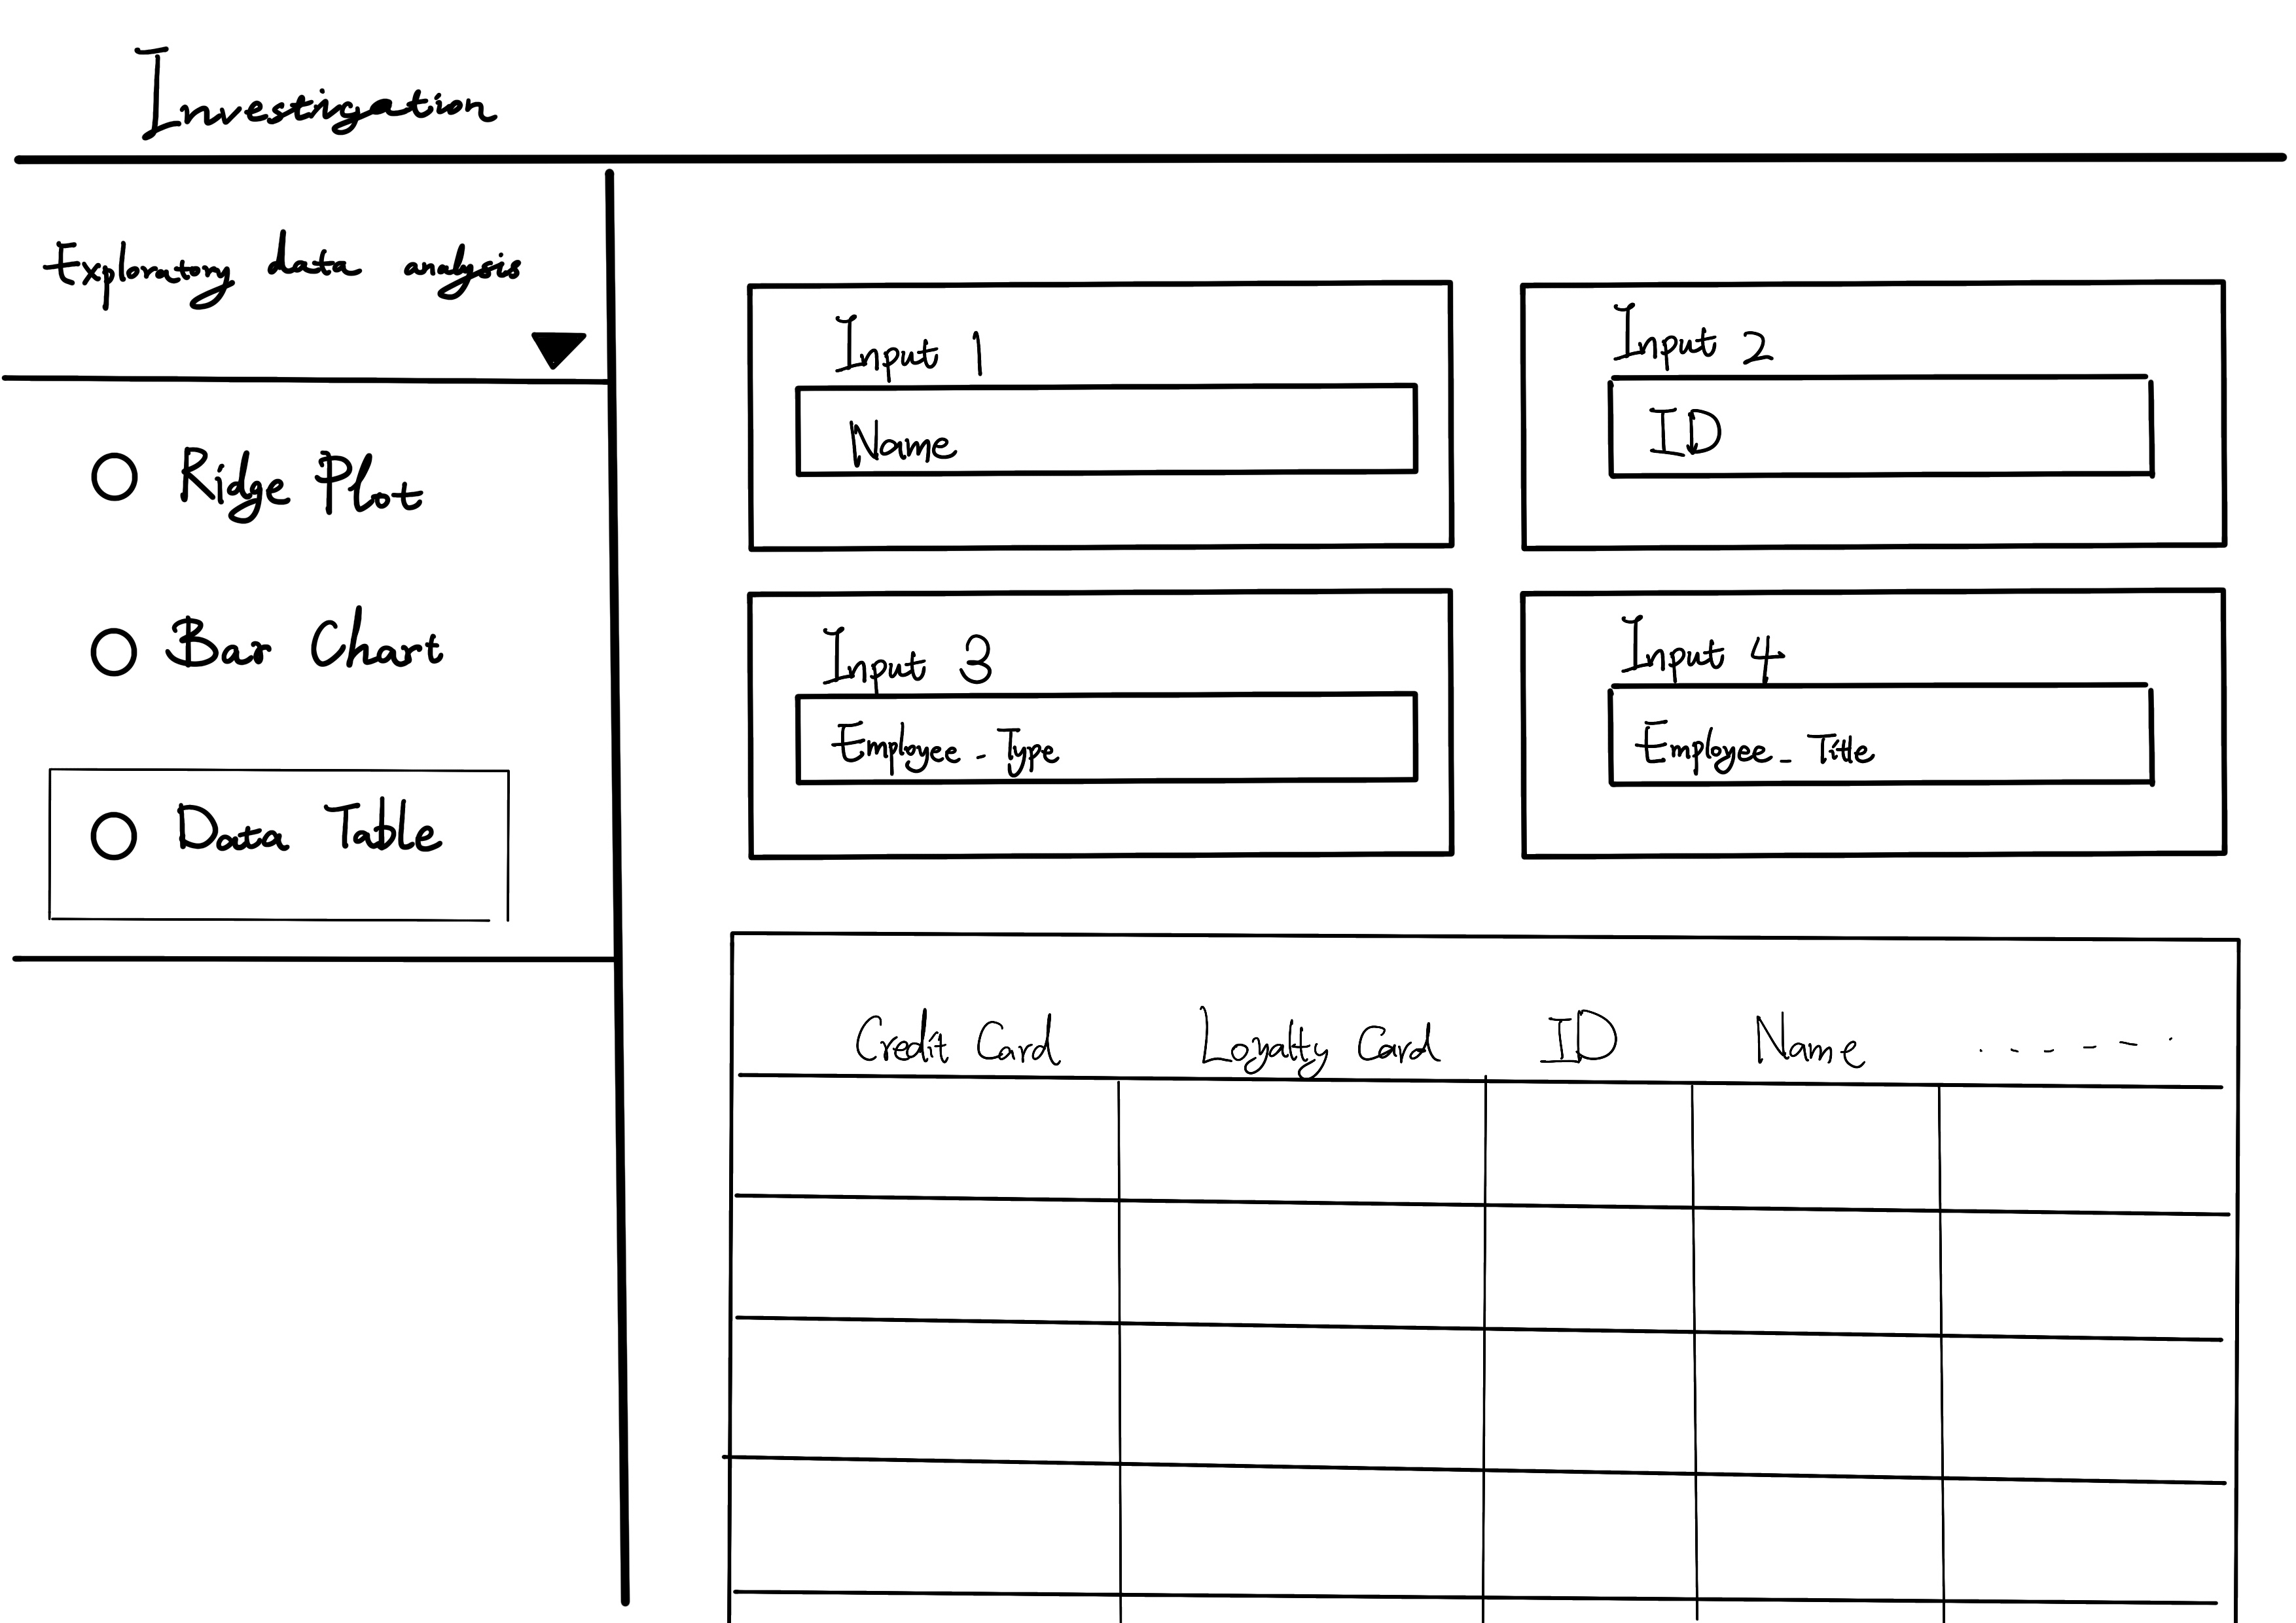 Investigation
Exploratory data analysis
Ridge Plot
Bar Chart
Data Table
Input 1
Name
Input 2
ID
Input 3
Employee_Type
Input 4
Employee_Title
Credit Card Loyalty Card ID Name ......